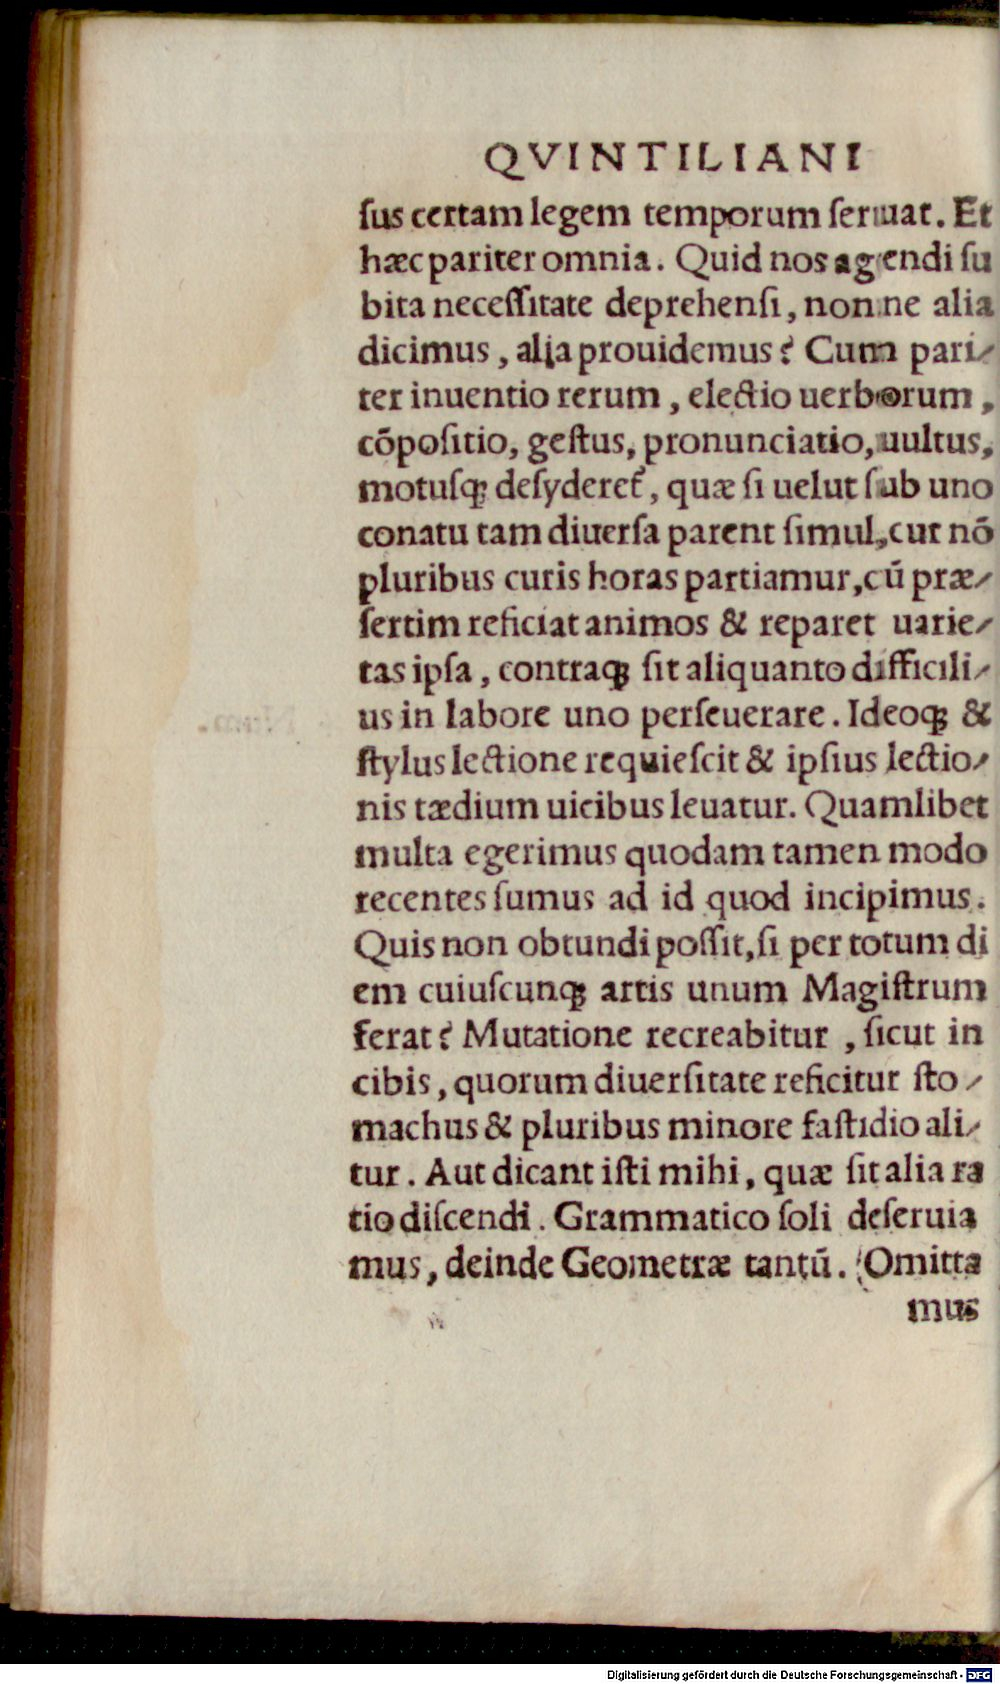 QVINTILIANI
ſus certam legem temporum ſeruat. Et
hæc pariter omnia. Quid nos agendi ſu
bita neceſſitate deprehenſi, nonne alia
dicimus, alia prouidemus? Cum pari⸗
ter inuentio rerum, electio uerborum,
cõpoſitio, geſtus, pronunciatio, uultus,
motusq́ꝫ deſyderet᷑, quæ ſi uelut ſub uno
conatu tam diuerſa parent ſimul, cur nõ
pluribus curis horas partiamur, cũ præ⸗
ſertim reficiat animos & reparet uarie⸗
tas ipſa, contraqꝫ ſit aliquanto difficili⸗
us in labore uno perſeuerare. Ideoqꝫ &
ſtylus lectione requieſcit & ipſius lectio⸗
nis tædium uicibus leuatur. Quamlibet
multa egerimus quodam tamen modo
recentes ſumus ad id quod incipimus.
Quis non obtundi poſſit, ſi per totum di
em cuiuſcunqꝫ artis unum Magiſtrum
ferat? Mutatione recreabitur, ſicut in
cibis, quorum diuerſitate reficitur ſto⸗
machus & pluribus minore faſtidio ali⸗
tur. Aut dicant iſti mihi, quæ ſit alia ra
tio diſcendi. Grammatico ſoli deſeruia
mus, deinde Geometræ tantũ. Omitta
mus
Digitalisierung gefördert durch die Deutsche Forschungsgemeinschaft - DFG